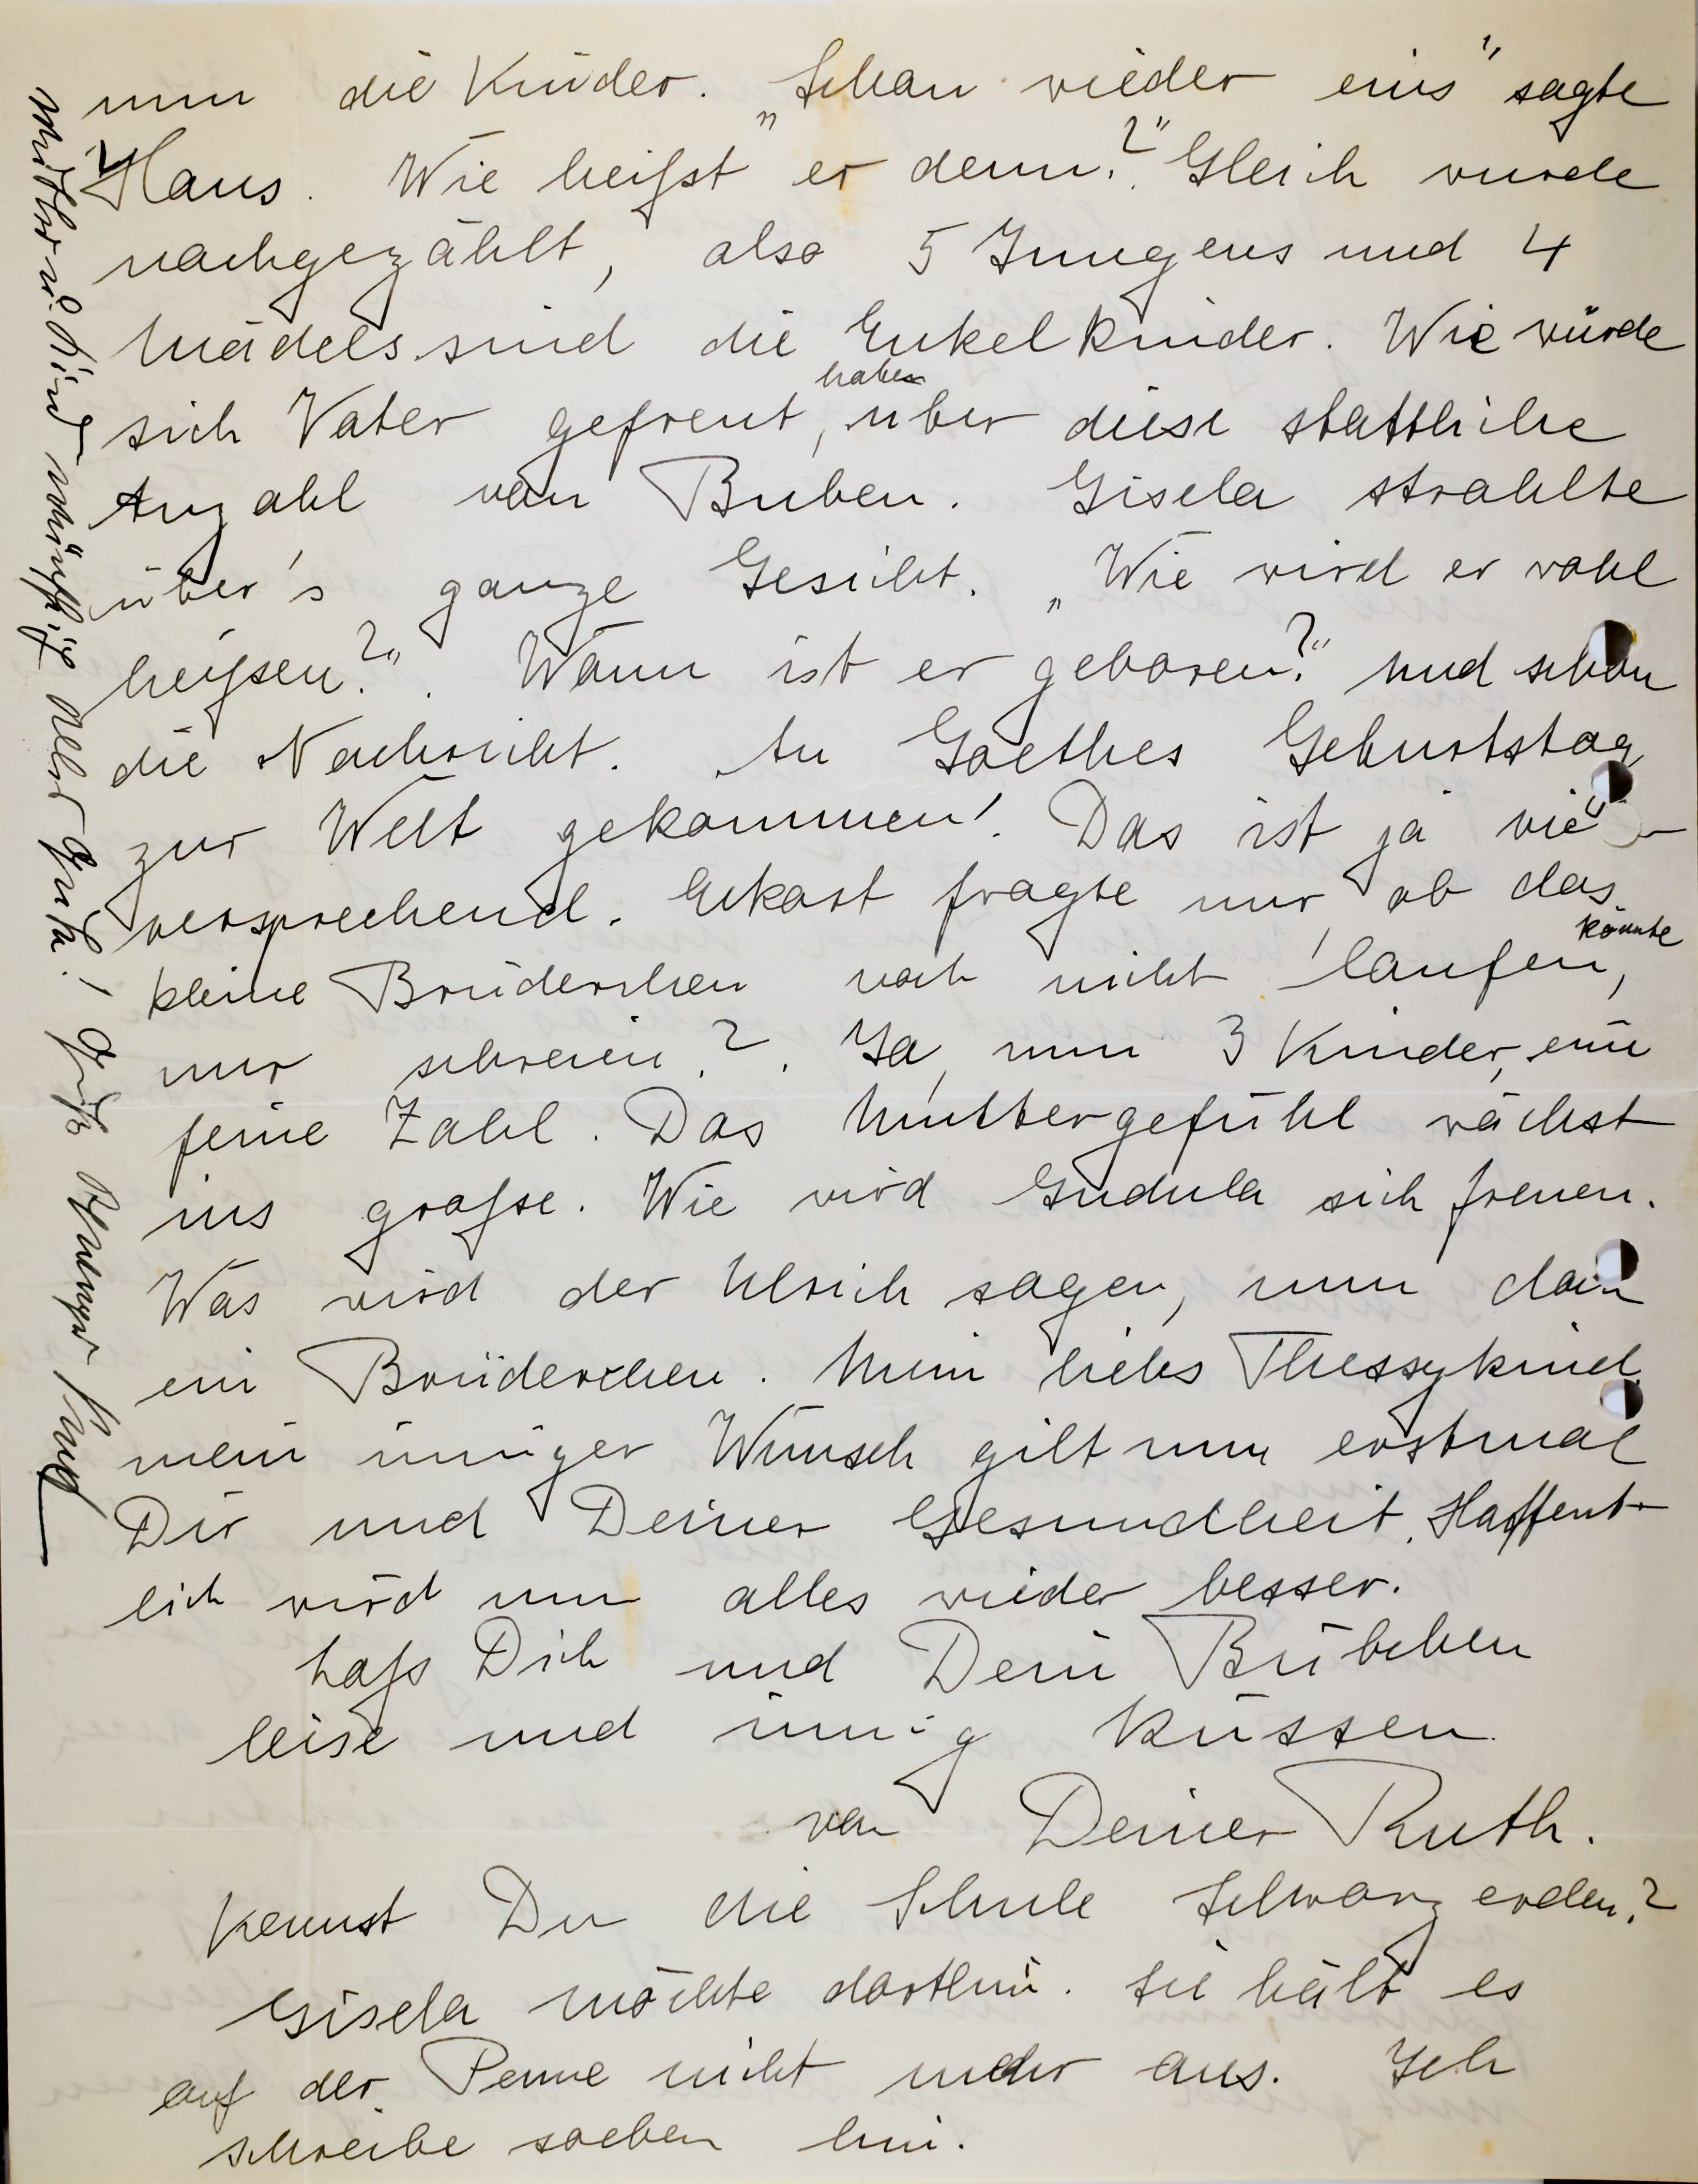 nun die Kinder. „Schon wieder eins" sagte
Hans. „Wie heißt er denn?" Gleich wurde
nachgezählt, also 5 Jungens und 4
Mädels sind die Enkelkinder. Wie würde
sich Vater gefreut haben, über diese stattliche
Anzahl von Buben. Gisela strahlte
über's ganze Gesicht. „Wie wird er wohl
heißen?". Wann ist er geboren?" und schon
die Nachricht. An Goethes Geburtstag
zur Welt gekommen! Das ist ja viel-
versprechend. Eckart fragte nur, ob das
kleine Brüderchen noch nicht laufen könnte,
nur schreien?. Ja, nun 3 Kinder, eine
feine Zahl. Das Muttergefühl wächst
ins große. Wie wird Gudula sich freuen.
Was wird der Ulrich sagen, nun dann
ein Brüderchen. Mein liebs Thessykind
mein inniger Wunsch gilt nun erstmal
Dir und Deiner Gesundheit. Hoffent-
lich wird nun alles wieder besser.
Laß Dich und Dein Bübchen
leise und innig küssen
von Deiner Ruth.
Kennst Du die Schule Schwarzerden?
Gisela möchte dorthin. Sie hält es
auf der Penne nicht mehr aus. Ich
schreibe soeben hin.
u. Kind wünscht alles Gute!